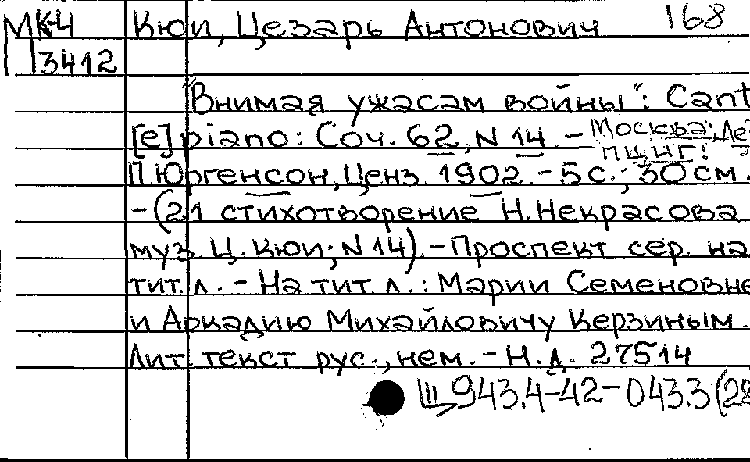 МК-4 Кюи, Цезарь Антонович 168
3412
"Внимая ужасам войны": Cant
[e] piano: Соч. 62, N 14. - Москва;
П. Юргенсон, Ценз. 1902. - 5 с.; 30 см.
- (21 стихотворение Н. Некрасова
муз. Ц. Кюи; N 14). - Проспект сер. на
тит. л. - На тит. л.: Марии Семеновне
и Аркадию Михайловичу Керзиным.
Лит. текст рус., нем. - Н.д. 27514
Щ943.4-42-043.3(28